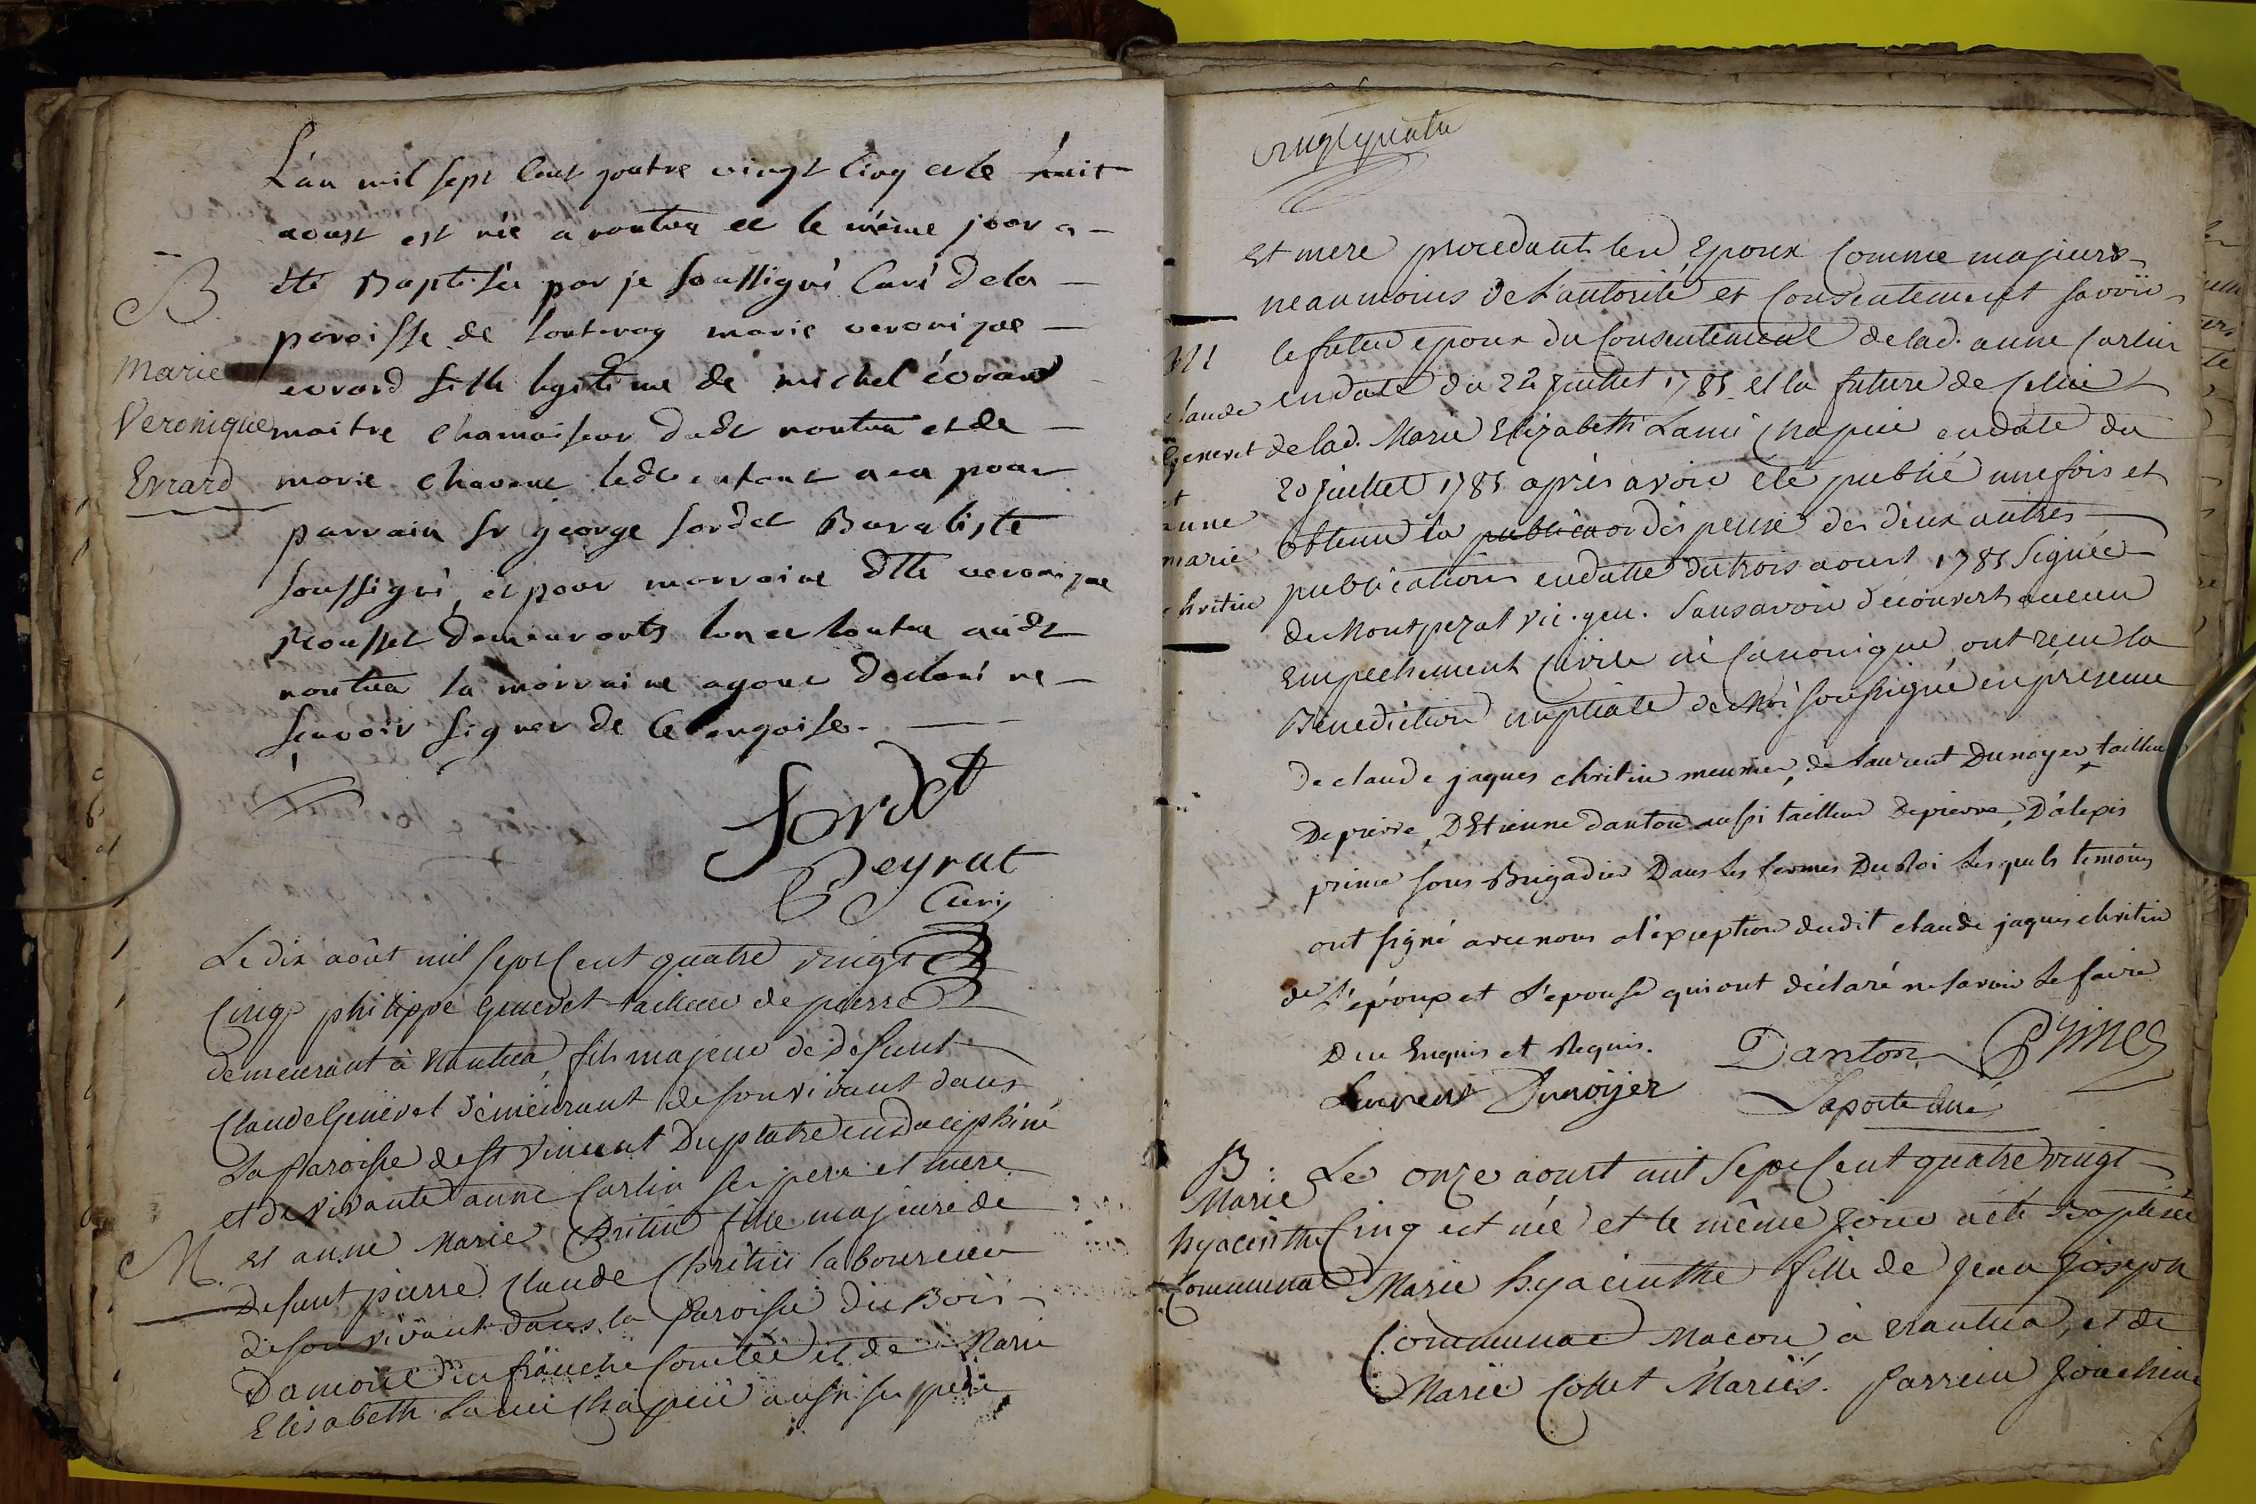 L'an mil sept Cent quatre vingt Cinq et le huit
aoust est née a nantua et le même jour a
été Baptisée par je soussigné Curé de la
B.
paroisse de marie veronique
Marie
Veronique
Evrard
evrard fille legitime de michel évrard
maitre chamoiseur dudt nantua et de
marie ledt enfant a eu pour
parrain sr george sordet Buraliste
soussigné, et pour marraine dlle veronique
rousset demeurants l'un et l'autre audt
nantua la marraine ayant declaré ne
sçavoir signer de ce enquise.
Sordet
Peyrat
Curé
Le dix août mil sept Cent quatre vingt
Cinq philippe Genevet tailleur de pierre
demeurant à Nantua, fils majeur de défunt
Claude Genevet demeurant de son vivant dans
La Paroisse de st Vincent Duplatre en dauphiné
et de vivante anne Carlin ses pere et mere
M.
et anne Marie Chritin fille majeure de
Defunt pierre Claude Chritin laboureur
de son vivant dans la Paroisse du Bois
Damont en franche Comtée et de Marie
Elisabeth Lami Chapuis aussi ses pere
vingt quatre
et mere procedants lesd. Epoux Comme majeurs
neanmoins de l'autorité et Consentement savoir
M
claude
genevet
et
anne
marie
chritin
le futur epoux du Consentement de lad. anne Carlin
en date du 22 juillet 1785 et la future de Celui
de lad. Marie Elizabeth Lami Chapuis en date du
20 juillet 1785 après avoir été publié une fois et
obtenu la dispense des deux autres
publications en datte du trois aoust 1785 Signée
de Montpezat vic. gen. Sans avoir découvert aucun
Empechement Civile ni Canonique, ont recu la
Benediction nuptiale de Moi soussigné en presence
de claude jaques chritin meunier, de laurent Dunoyer tailleur
De pierre, D'Etienne danton aussi tailleur de pierre, D'alexis
prince sous Brigadier Dans les fermes Du Roi Lesquels temoins
ont signé avec nous a l'exception dudit claude jaques chritin
de L'epoux et L'epouse qui ont déclaré ne savoir le faire
De ce Enquis et Requis.
Danton
Prince
Laurent Dunoyer
Laporte Curé
B:
Marie
hyacinthe
Communal
Le onze aoust mil Sept Cent quatre vingt
Cinq est née et le même jour a été Baptisée
Marie hyacinthe fille de Jean Joseph
Communal Macon à Nantua, et de
Marie Collet Mariés. Parrain Joachim